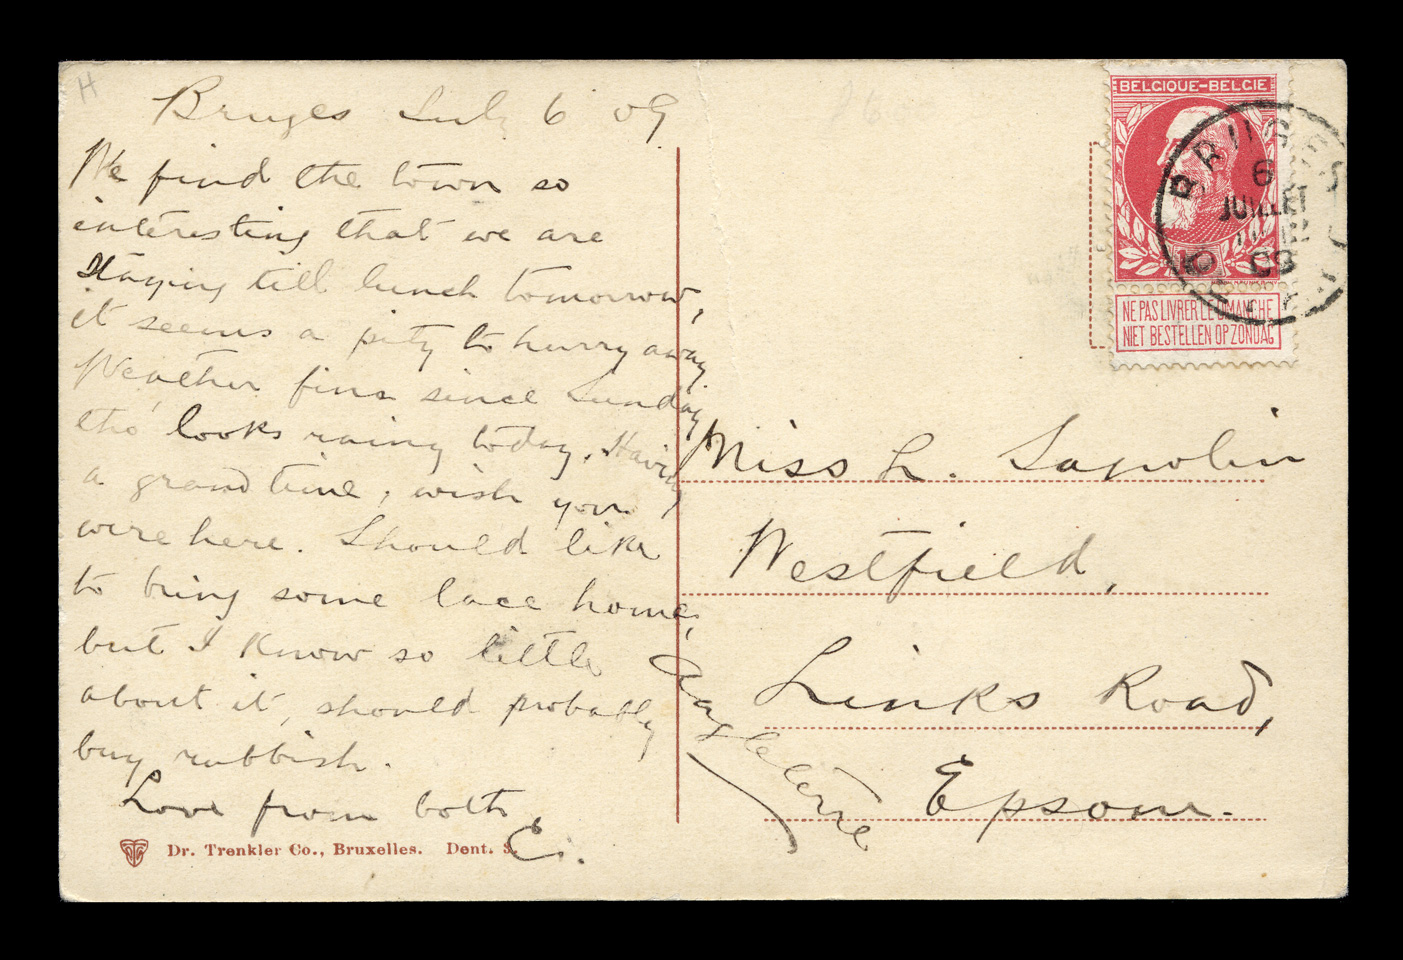 H
Bruges July 6 09
We find the town so
interesting that we are
staying till lunch tomorrow,
it seems a pity to hurry away
Weather fine since Sunday
tho' looks rainy today. Having
a grand time, wish you
were here. Should like
to bring some lace home,
but I know so little
about it, should probably
buy rubbish.
Love from both
E.
Dr. Trenkler Co., Bruxelles. Dent.
BELGIQUE-BELGIE
10
NE PAS LIVRER LE DIMANCHE
NIET BESTELLEN OP ZONDAG
BRUGES
6
JUILLET
09
Miss L. Sapolin
Westfield,
Links Road,
Epsom.
Angleterre